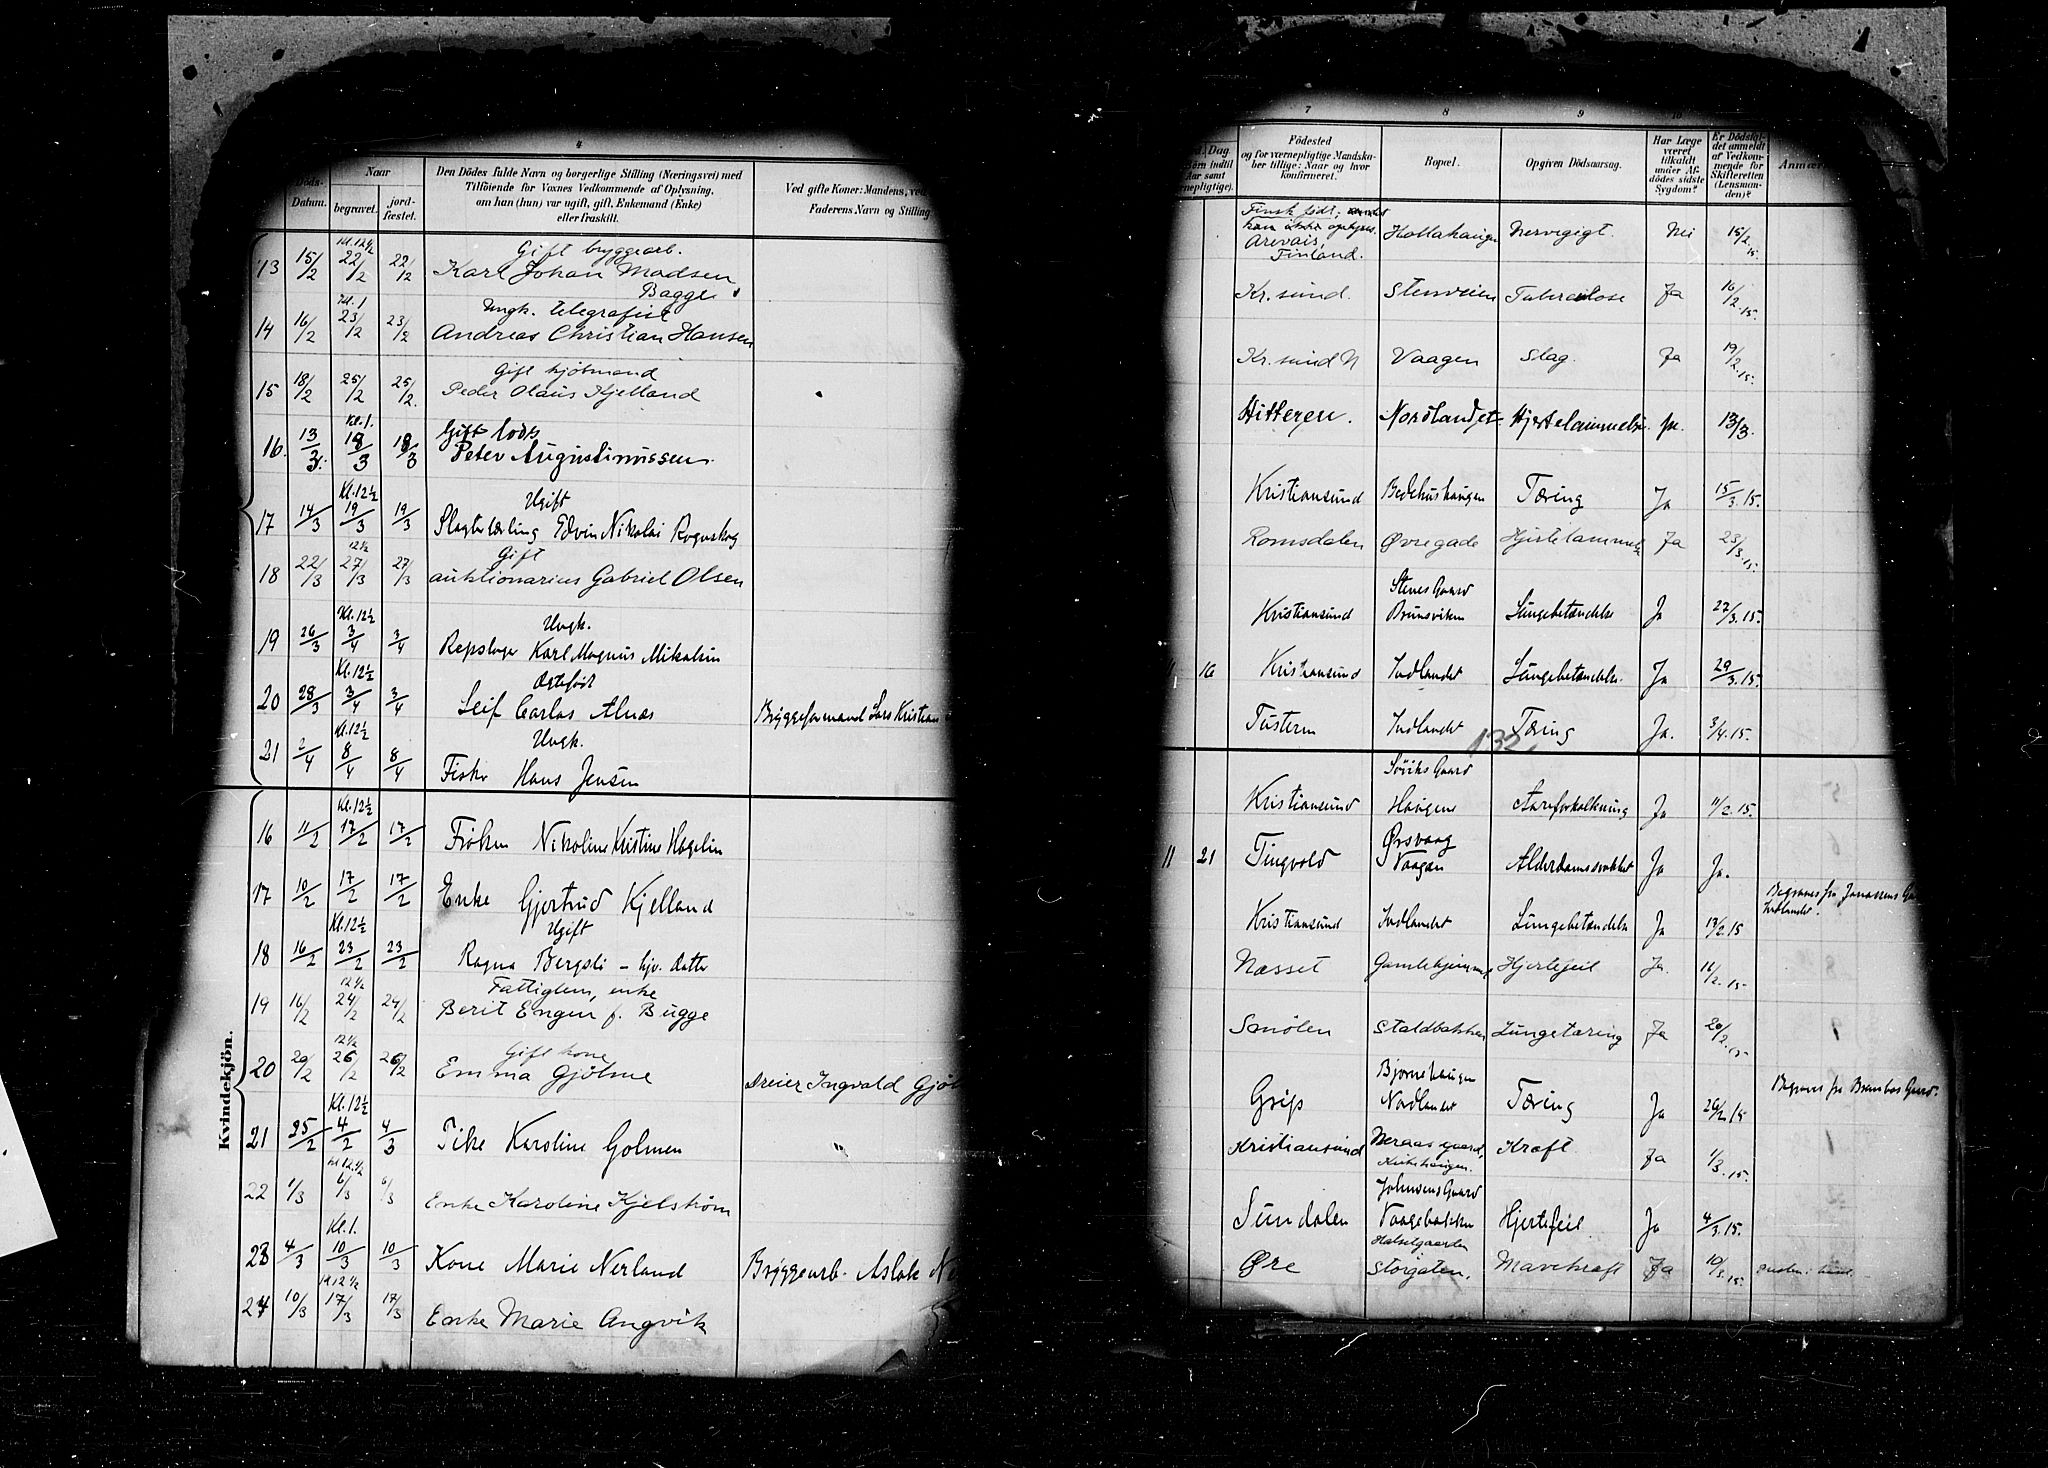 4
Döds-
Datum.
Naar
begravet.
jord-
fæstet.
Den Dödes fulde Navn og borgerlige Stilling (Næringsvei) med
Tilföiende for Voxnes Vedkommende af Oplysning,
om han (hun) var ugift, gift, Enkemand (Enke)
eller fraskilt.
Ved gifte Koner: Mandens, ved
Faderens Navn og Stilling
Kl. 12½
Gift bryggearb.
13 15/2 22/2 22/2 Karl Johan Madsen
Bagge
Kl. 1
Ungk. telegrafist
14 16/2 23/2 23/2 Andreas Christian Hansen
Gift kjøbmand
15 18/2 25/2 25/2. Peder Olaus Kjelland
Kl. 1.
Gift lods
16. 13/3. 18/3 18/3 Peter Augustinussen.
Kl. 12½
Ugift
17 14/3 19/3 19/3 Slagterlærling Edvin Nikolai Rognskog
12½
Gift
18 22/3 27/3 27/3 auktionarius Gabriel Olsen
Kl. 12½
Ungk.
19 26/3 3/4 3/4 Repslager Karl Magnus Mikalsen
Kl. 12½
Ægtefødt
20 28/3 3/4 3/4 Leif Carlos Alnæs Bryggeformand Lars Kristian
Kl. 12½
Ungk.
21 2/4 8/4 8/4 Fisker Hans Jensen
Kvindekjön.
Kl. 12½
16 11/2 17/2 17/2 Frøken Nikoline Kristine Hagelin
17 10/2 17/2 17/2 Enke Gjertrud Kjelland
Kl. 12½
Ugift
18 16/2 23/2 23/2 Ragna Bergsli – hjv. datter
12½
Fattiglem, enke
19 16/2 24/2 24/2 Berit Engen f. Bugge
12½
Gift kone
20 20/2 26/2 26/2 Emma Gjølme Dreier Ingvald Gjøl
Kl. 12½
21 25/2 4/2 4/3 Pike Karoline Golmen
kl 12½
22 1/3 6/3 6/3 Enke Karoline Kjelstrøm
Kl. 1.
23 4/3 10/3 10/3 Kone Marie Nerland Bryggearb. Aslak Ne
kl 12½
24 10/3 17/3 17/3 Enke Marie Angvik
7 8 9 10
Dag
Födested
og for værnepligtige Mandska-
ber tillige: Naar og hvor
konfirmeret.
Bopæl.
Opgiven Dödsaarsag.
Har Læge
været
tilkaldt
under Af-
dödes sidste
Sygdom?
Er Dödsfal-
det anmeldt
af Vedkom-
mende for
Skifteretten
(Lensman-
den)?
Anmær
Finsk født;
Arevais,
Finland.
Hollahaugen Nervegigt. Nei 15/2 15.
Kr.sund. Stenveien Tuberculose Ja 16/2.15.
Kr.sund N Vaagen Slag. Ja 19/2.15.
Hitteren. Nordlandet Hjertelammelse. ja. 13/3.
Kristiansund Bedehushaugen Tæring Ja 15/3.15.
Romsdalen Øvregade Hjertelammelse Ja 23/3.15.
Stenes Gaard
Kristiansund Brunsviken Lungebetændelse Ja 27/3.15.
11 16 Kristiansund Indlandet Lungebetændelse. Ja 29/3.15.
Tusteren Indlandet Tæring Ja. 3/4.15.
132.
Kristiansund Haugene Aareforkalkning Ja 11/2.15.
Ørsvaag
11 21 Tingvold Vaagen Alderdomssvakhet Ja Ja.
Kristiansund Indlandet Lungebetændelse Ja 17/2.15
Begraves fra Jonassens Ga
Indlandet.
Næsset Gamlehjemmet Hjertefeil Ja. 16/2.15
Smølen Staldbakken Lungetæring Ja 20/2.15
Bjørnehaugen
Grip Nordlandet Tæring Ja 26/2.15
Begraves fra Brembos Gaard.
Kristiansund Neraas gaard, Kræft Ja 1/3.15.
Kirkehaugen.
Johnsens Gaard
Sundalen Vaagebakken Hjertefeil. Ja 4/3.15.
Øre Storgaten. Mavekræft Ja 10/3.15.